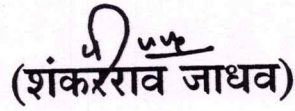 (शंकरराव जाधव)